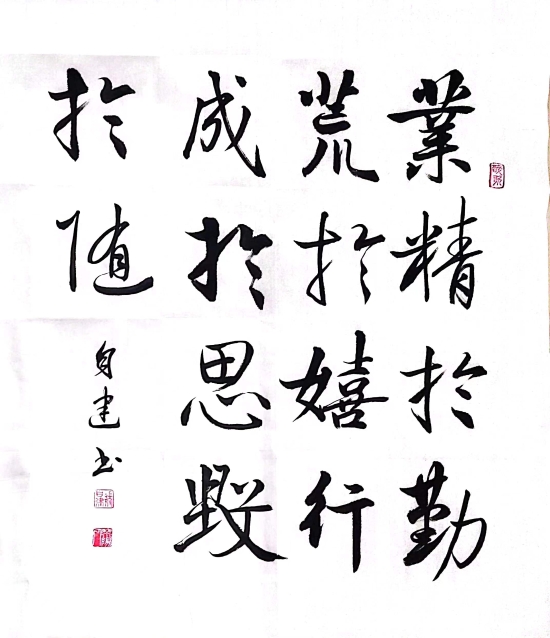 業精於勤
荒於嬉行
成於思毀
於随
自建书